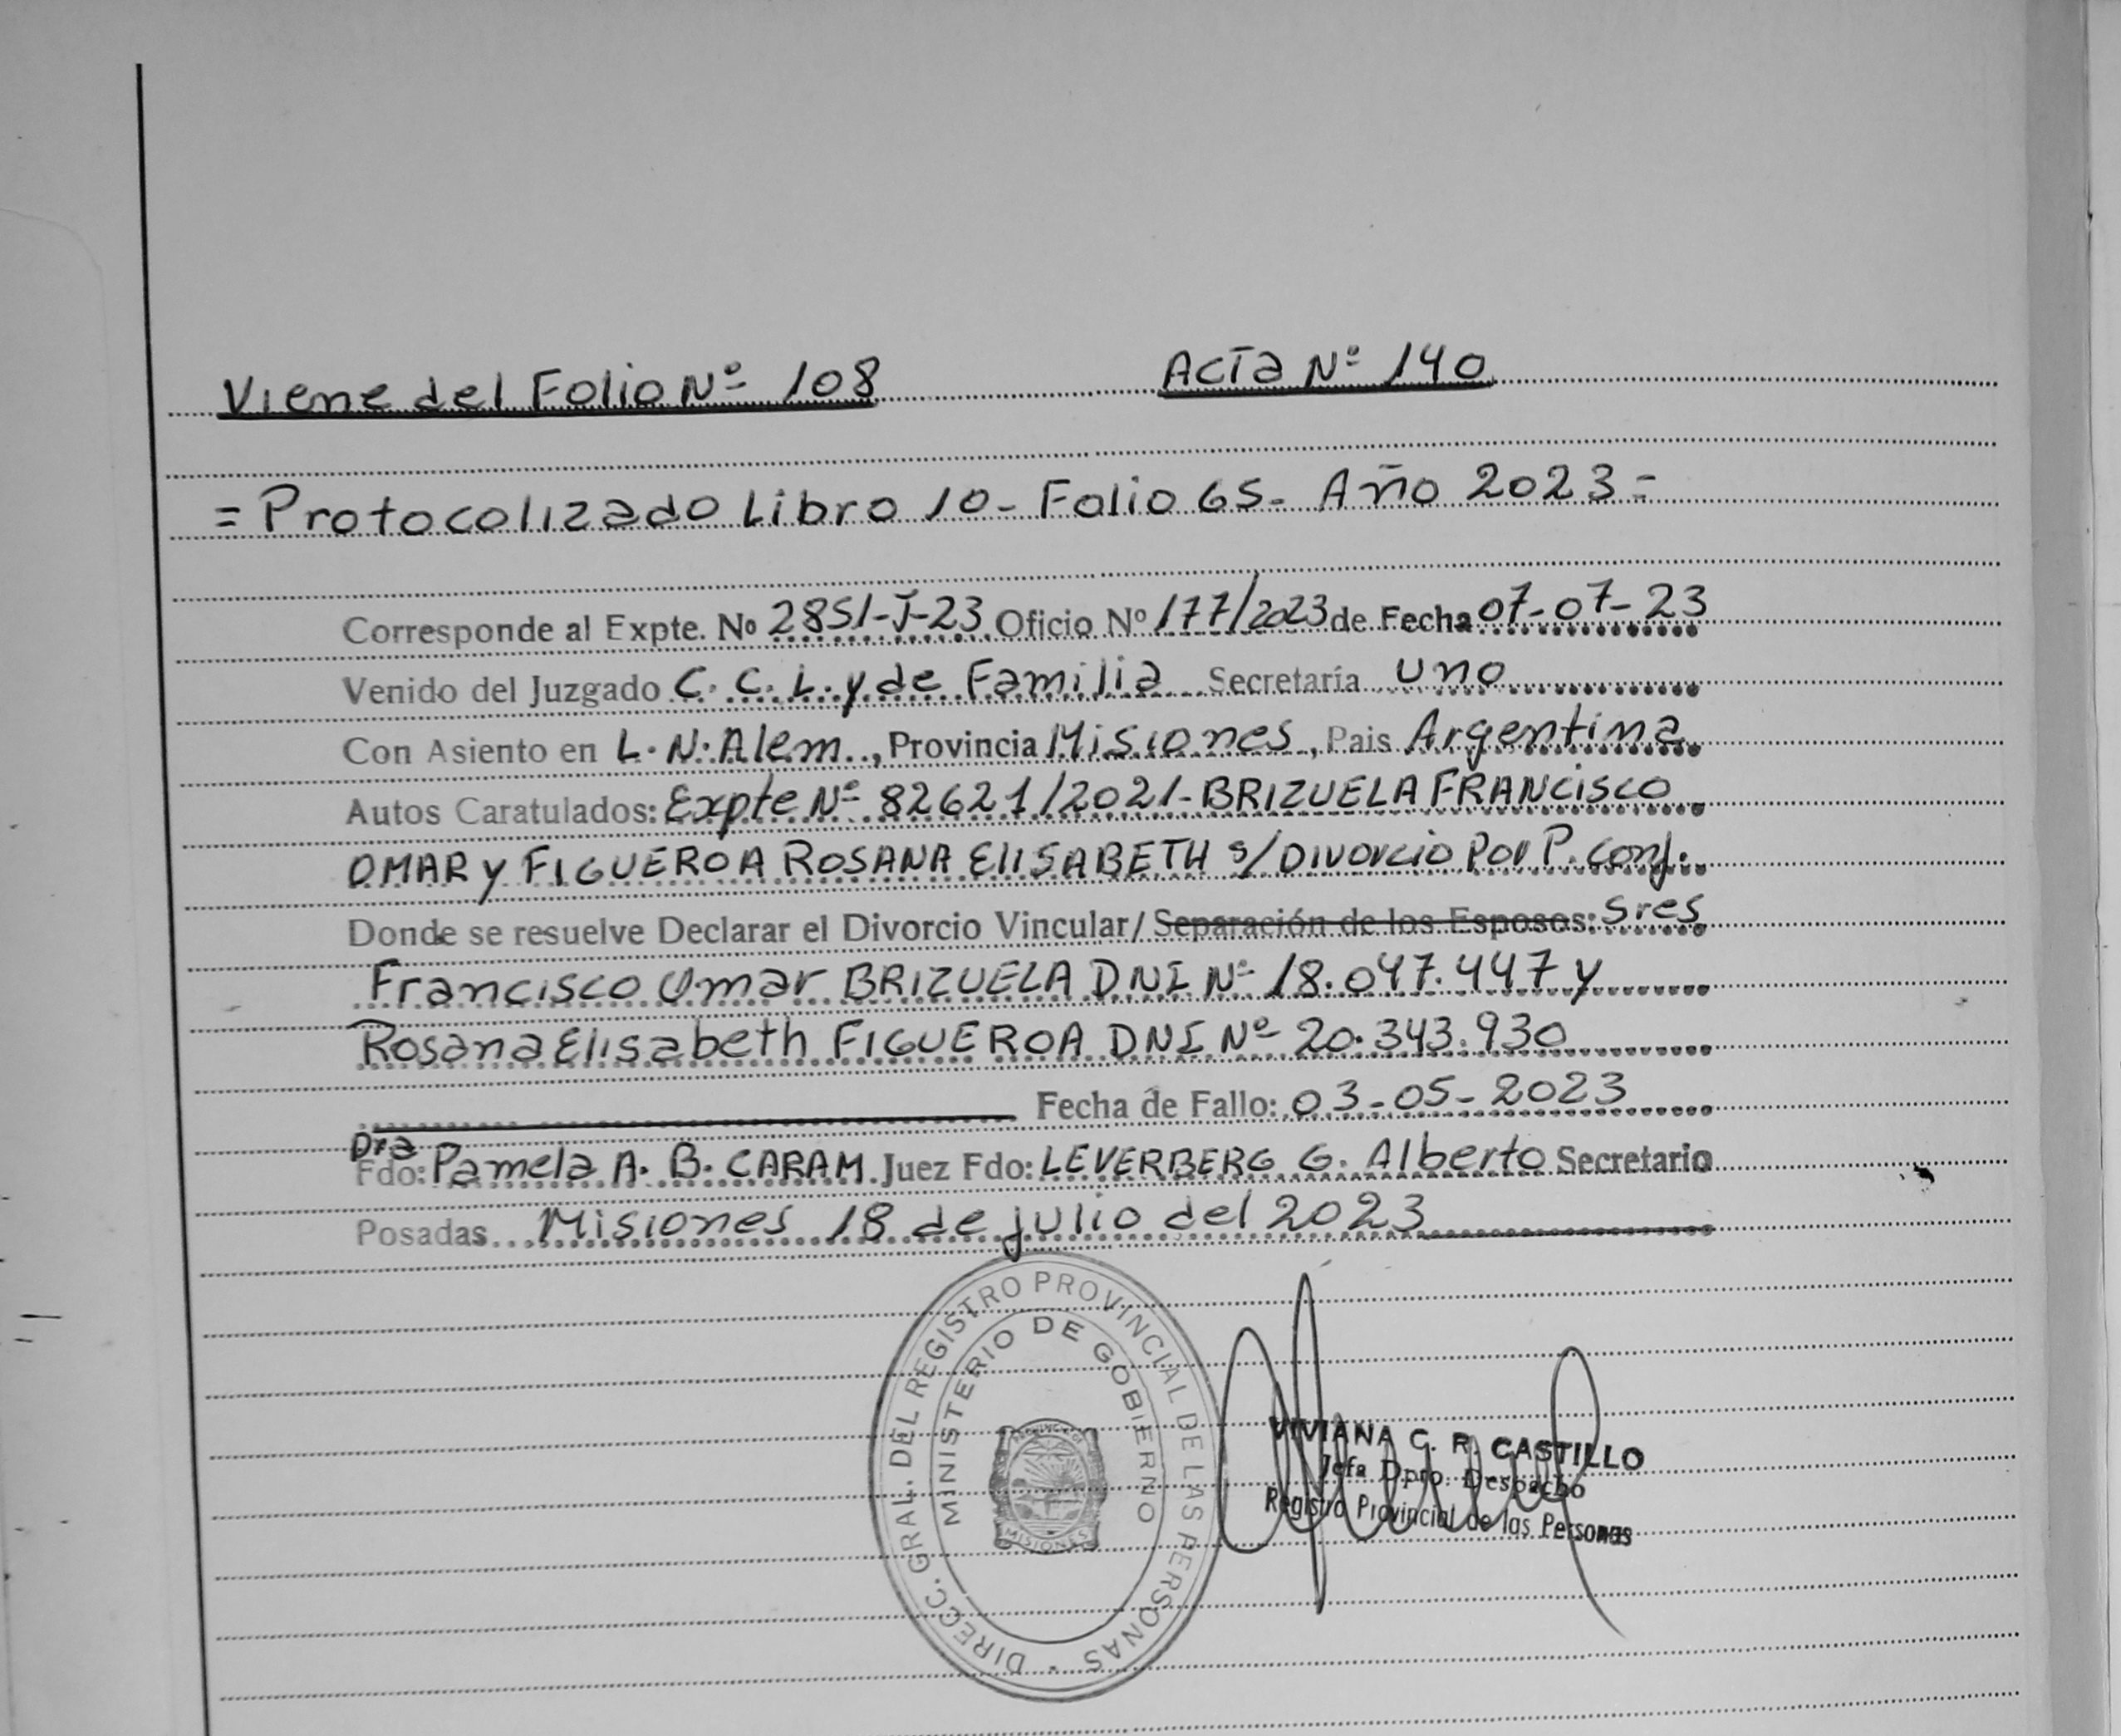 Viene del Folio Nº 108 Acta Nº 140
= Protocolizado Libro 10 - Folio 65 - Año 2023 =
Corresponde al Expte. No 2851-J-23 Oficio Nº 177/2023 de Fecha 07-07-23
Venido del Juzgado C. C. L. y de Familia Secretaría uno
Con Asiento en L. N. Alem, Provincia Misiones, Pais Argentina
Autos Caratulados: Expte Nº 82621/2021 - BRIZUELA FRANCISCO
OMAR y FIGUEROA ROSANA ELISABETH s/ Divorcio Por P. Conj.
Donde se resuelve Declarar el Divorcio Vincular/ Separación de los Esposos: Sres
Francisco Omar BRIZUELA DNI Nº 18.047.447 y
Rosana Elisabeth FIGUEROA DNI Nº 20.343.930
Fecha de Fallo: 03-05-2023
Dra
Fdo: Pamela A. B. CARAM Juez Fdo: LEVERBERG G. Alberto Secretario
Posadas Misiones 18 de julio del 2023
DIRECC. GRAL. DEL REGISTRO PROVINCIAL DE LAS PERSONAS -
MINISTERIO DE GOBIERNO
PROVINCIA DE
MISIONES
VIVIANA C. R. CASTILLO
Jefa Dpto. Despacho
Registro Provincial de las Personas